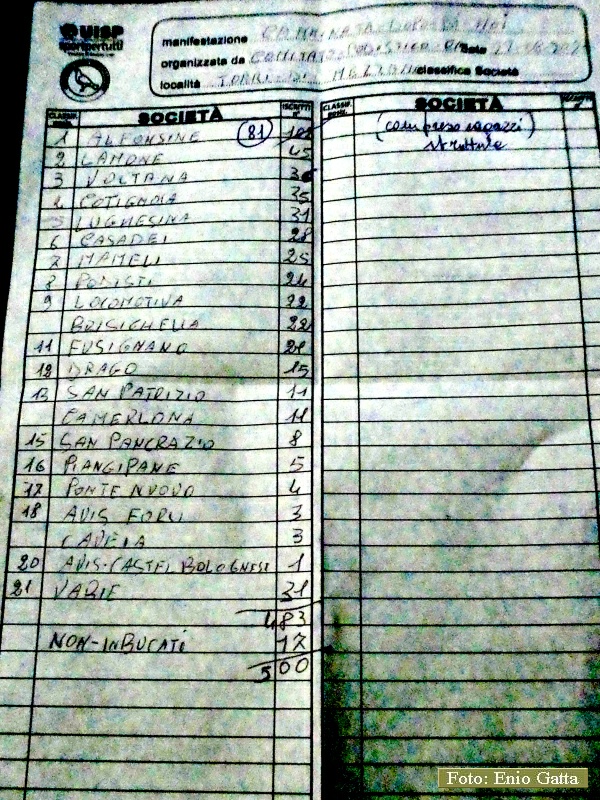 UISP
sportpertutti
manifestazione CAMMINATA DOPO DI NOI
organizzata da COMITATO PODISTICO Data
località TORRI DI MEZZANO classifica Società
CLASSIF. SOCIETÀ ISCRITTI n° CLASSIF. SOCIETÀ ISCRITTI n°
1 ALFONSINE (81) 102 (compreso ragazzi)
2 LAMONE 45 strutture
3 VOLTANA 36
4 COTIGNOLA 35
5 LUGHESINA 31
6 CASADEI 28
7 MAMELI 25
8 PODISTI 24
9 LOCOMOTIVA 22
BRISIGHELLA 22
11 FUSIGNANO 21
12 DRAGO 15
13 SAN PATRIZIO 11
CAMERLONA 11
15 SAN PANCRAZIO 8
16 PIANGIPANE 5
17 PONTE NUOVO 4
18 AVIS FORLI 3
CAVEJA 3
20 AVIS-CASTEL BOLOGNESE 1
21 VARIE 31
483
NON-INBUCATI 17
500
Foto: Enio Gatta